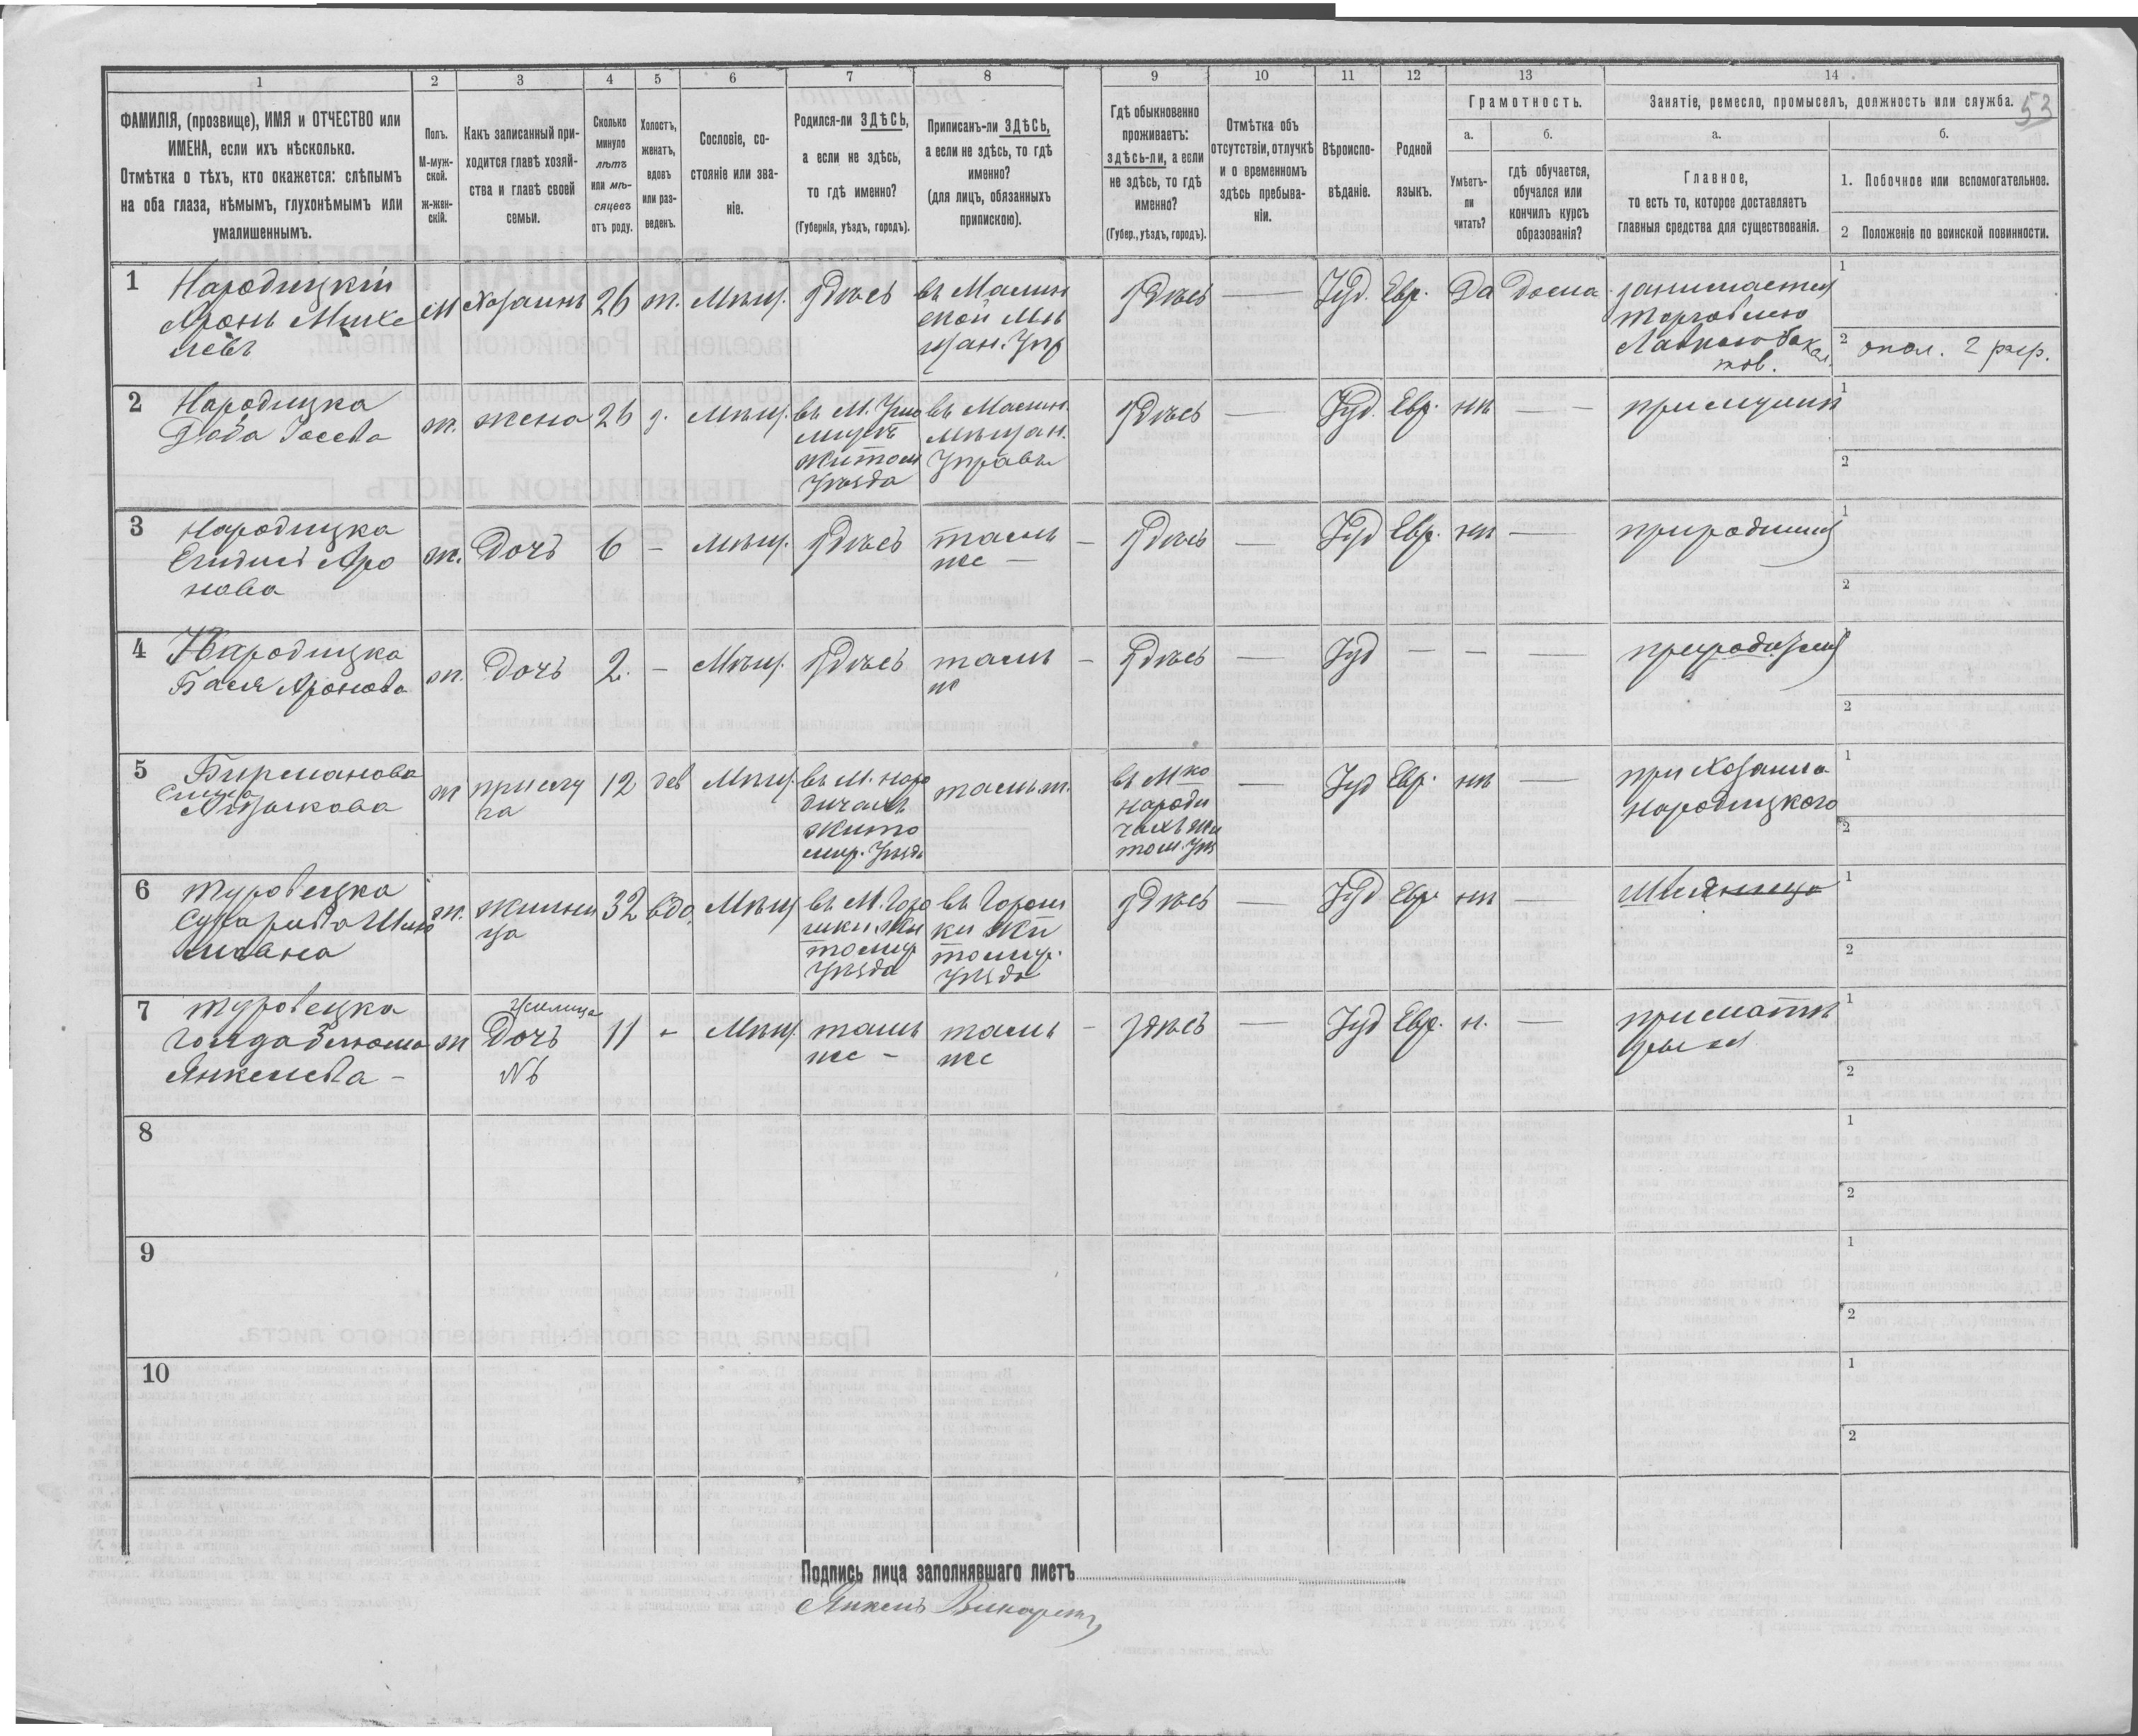 1 2 3 4 5 6 7 8 9 10 11 12 13 14
53
ФАМИЛІЯ, (прозвище), ИМЯ и ОТЧЕСТВО или
ИМЕНА, если ихъ нѣсколько.
Отмѣтка о тѣхъ, кто окажется: слѣпымъ
на оба глаза, нѣмымъ, глухонѣмымъ или
умалишеннымъ.
Полъ.
М-муж-
ской.
ж-жен-
скій.
Какъ записанный при-
ходится главѣ хозяй-
ства и главѣ своей
семьи.
Сколько
минуло
лѣтъ
или мѣ-
сяцевъ
отъ роду.
Холостъ,
женатъ,
вдовъ
или раз-
веденъ.
Сословіе, со-
стояніе или зва-
ніе.
Родился-ли ЗДѢСЬ,
а если не здѣсь,
то гдѣ именно?
(Губернія, уѣздъ, городъ).
Приписанъ-ли ЗДѢСЬ,
а если не здѣсь, то гдѣ
именно?
(для лицъ, обязанныхъ
припискою).
Гдѣ обыкновенно
проживаетъ:
здѣсь-ли, а если
не здѣсь, то гдѣ
именно?
(Губер., уѣздъ, городъ).
Отмѣтка объ
отсутствіи, отлучкѣ
и о временномъ
здѣсь пребыва-
ніи.
Вѣроиспо-
вѣданіе.
Родной
языкъ.
Грамотность.
а.
Умѣетъ-
ли
читать?
б.
гдѣ обучается,
обучался или
кончилъ курсъ
образованія?
Занятіе, ремесло, промыселъ, должность или служба.
а.
Главное,
то есть то, которое доставляетъ
главныя средства для существованія.
б.
1. Побочное или вспомогательное.
2 Положеніе по воинской повинности.
1
Народицкій
Аронь Михе
левъ
М
Хозаинъ
26
ж.
Мѣщ.
здѣсь
въ Малин
ской Мѣ
щан. Упр
здѣсь
—
Іуд.
Евр.
Да
Дома
занимается
торговлею
1
2
2 разр.
2
Народицка
ж.
жена
26
з.
Мѣщ.
въ М.
Житом
Уѣзда
въ Малин.
Мѣщан.
Управы
здѣсь
—
Іуд.
Евр.
нѣ
—
1
2
3
Народицка
Аро
нова
ж.
Дочь
6
—
Мѣщ.
здѣсь
тамъ
же —
—
здѣсь
—
Іуд
Евр.
нѣ
—
1
2
4
Народицка
Бася Аронова
ж.
Дочь
2.
—
Мѣщ.
здѣсь
тамъ
—
здѣсь
—
Іуд
—
—
—
1
2
5
Бирманова
ж
прислу
га
12
дев
Мѣщ.
въ М. Наро
дичахъ
Жито
мир. Уѣзд
тамъ ж.
въ М-ко
Народи
чахъ Жи
том. Уѣз
—
Іуд
Евр.
нѣ
—
при Хозаина
Народицкого
1
2
6
Туровецка
ж.
жилни
ца
32
вдо
Мѣщ
въ М. Горо
шки Жи
томир
Уѣзда
въ Горош
ки Жи
томир.
Уѣзда
здѣсь
—
Іуд
Евр
нѣ
—
1
2
7
Туровецка
Янкелева —
ж
Дочь
11
-
Мѣщ
тамъ
же —
тамъ
же
—
здѣсь
—
Іуд
Евр.
н.
—
при матть
1
2
8
1
2
9
1
2
10
1
2
Подпись лица заполнявшаго листъ
Янкель